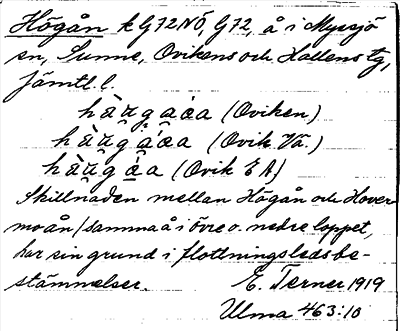 Högån k G72NÖ, G72, å i Myssjö
sn, Sunne, Ovikens och Hallens tg,
Jämtl. l.
(Oviken)
(Ovik. Vä.)
(Ovik E A)
Skillnaden mellan Högån och Hover-
moån/samma å i övre o. nedre loppet,
har sin grund i flottningsledsbe-
stämmelser. E. Terner 1919
Ulma 463:10